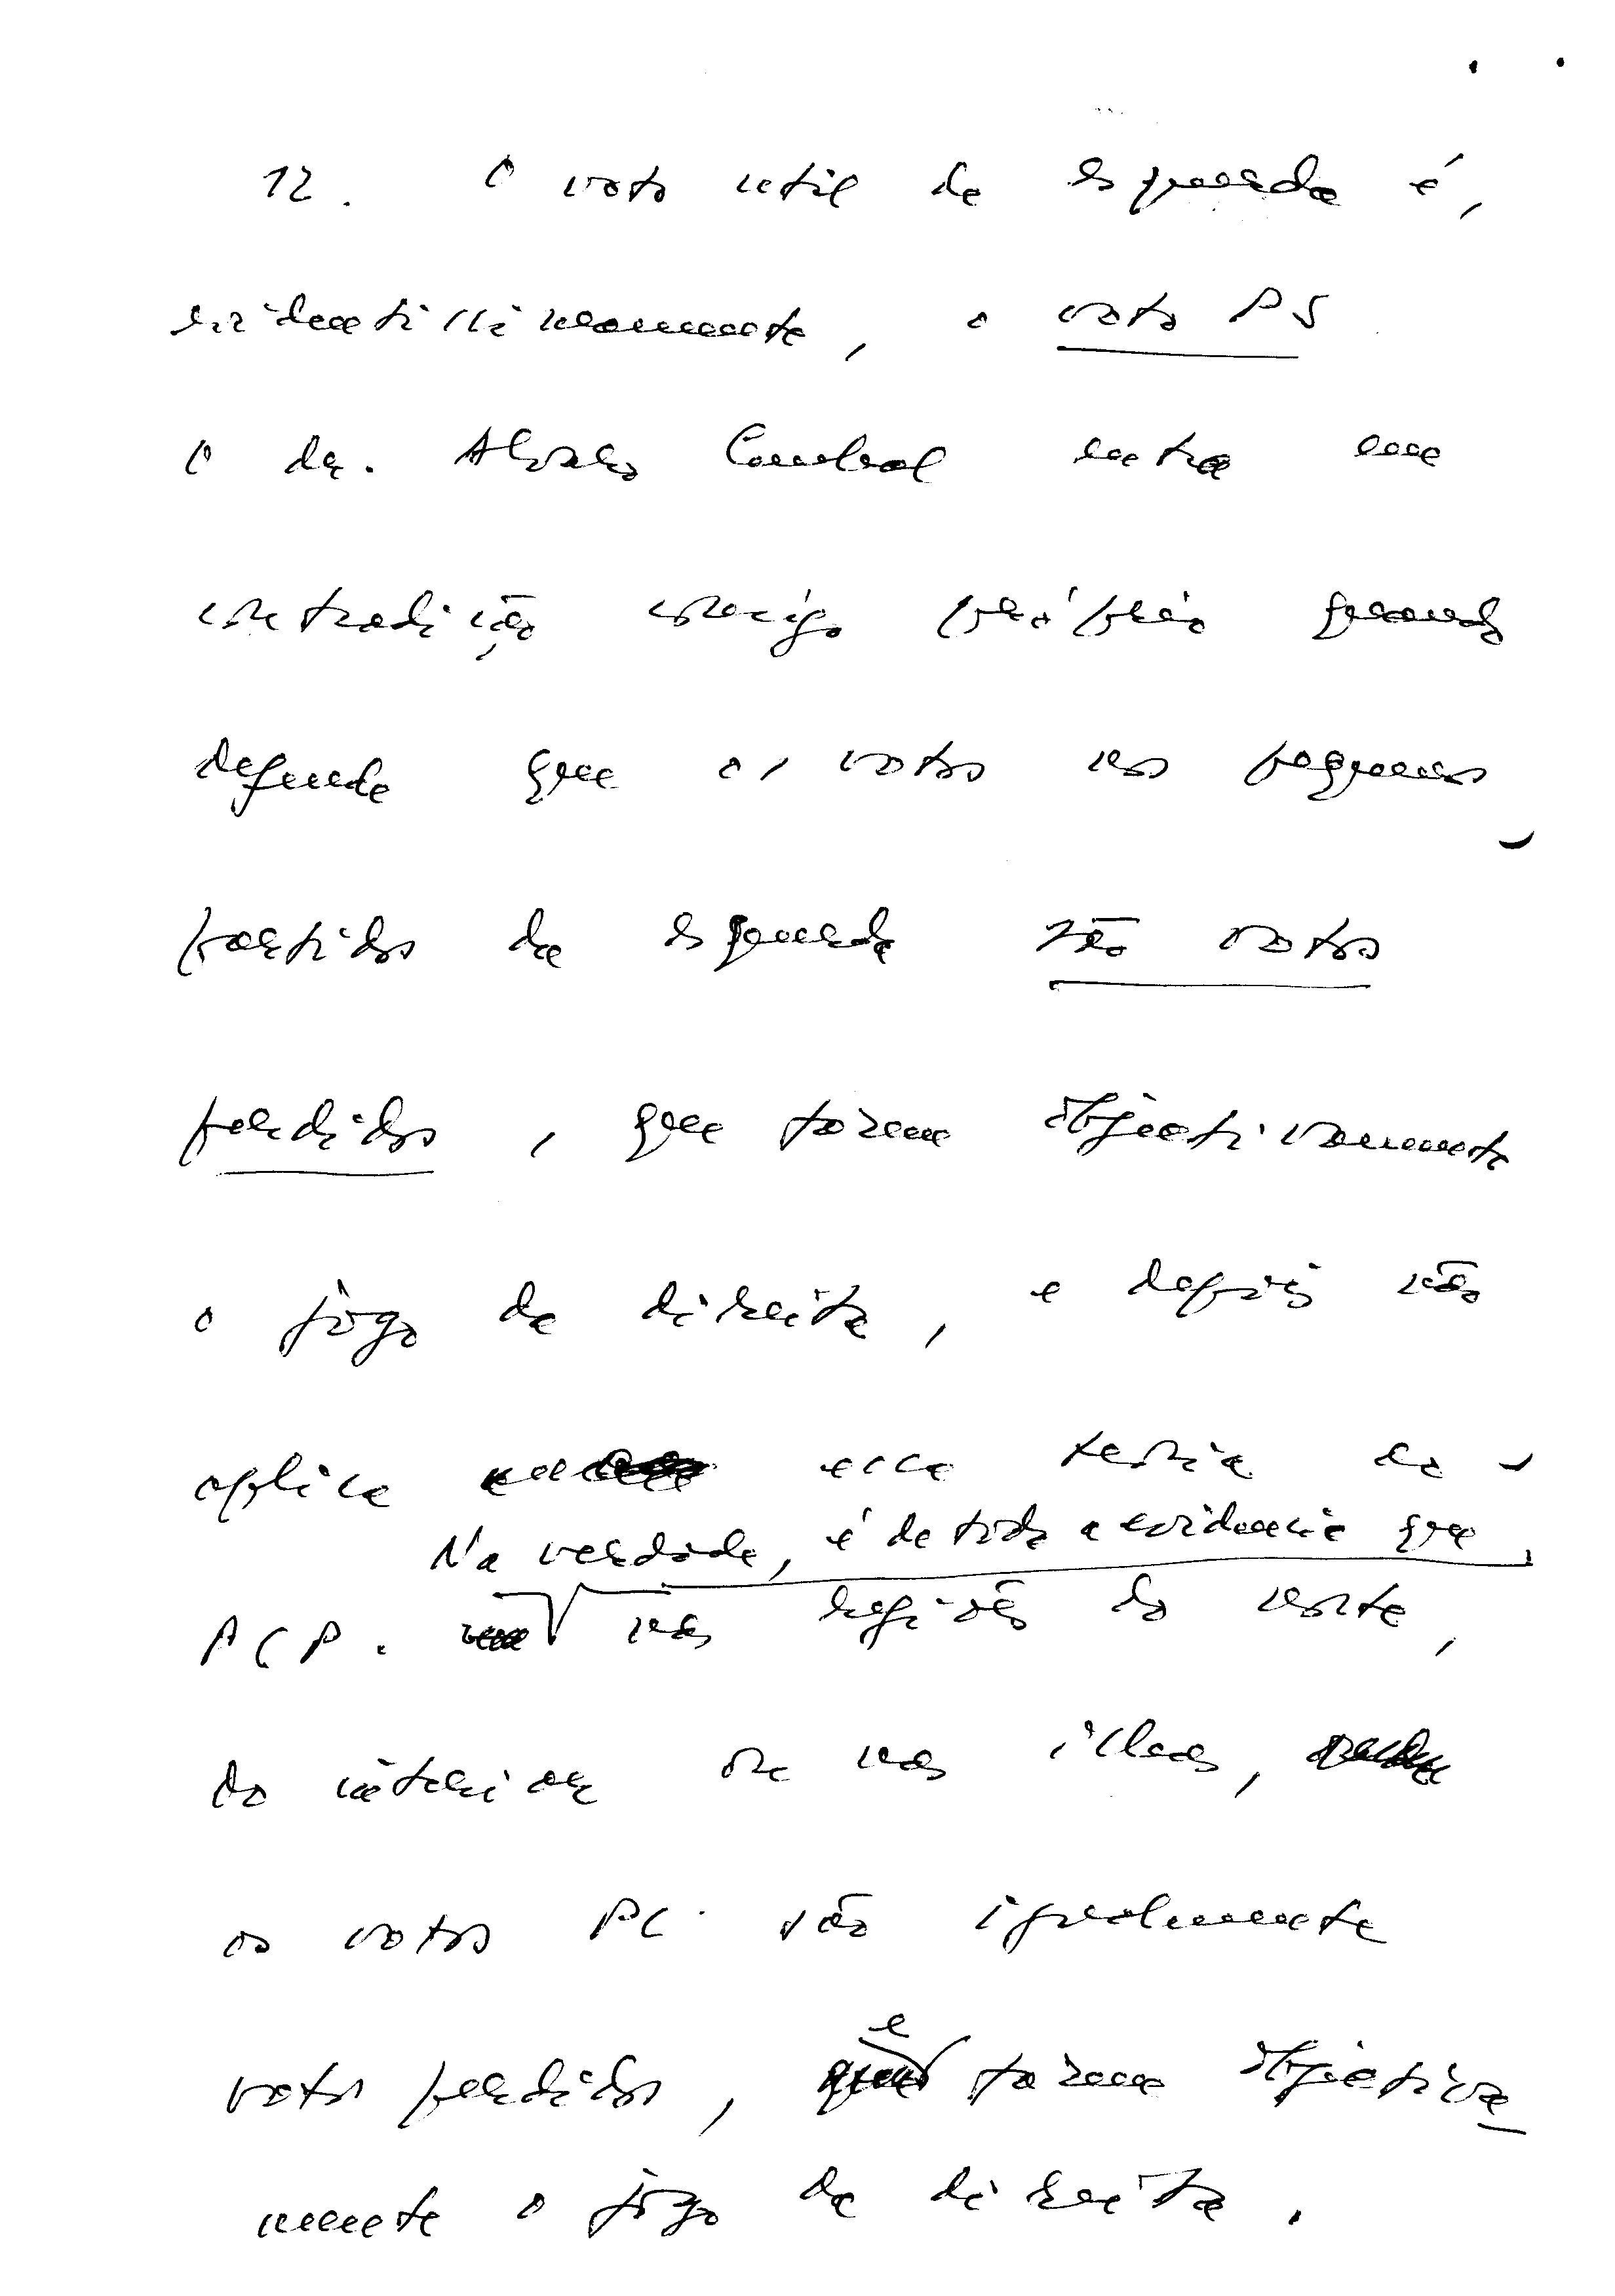 12. O voto util da esquerda é,
evidentissimamente, o voto PS
O dr. Alvaro Cunhal entra em
contradição consigo próprio quando
defende que os votos nos pequenos
partidos da esquerda são votos
perdidos, que fazem objectivamente
o jogo da direita, e depois não
aplica essa teoria ao
Na verdade, é de toda a evidencia que,
PCP. nas regiões do norte,
do interior ou nas ilhas,
os votos PC são igualmente
votos perdidos, e fazem objectiva
mente o jogo da direita.